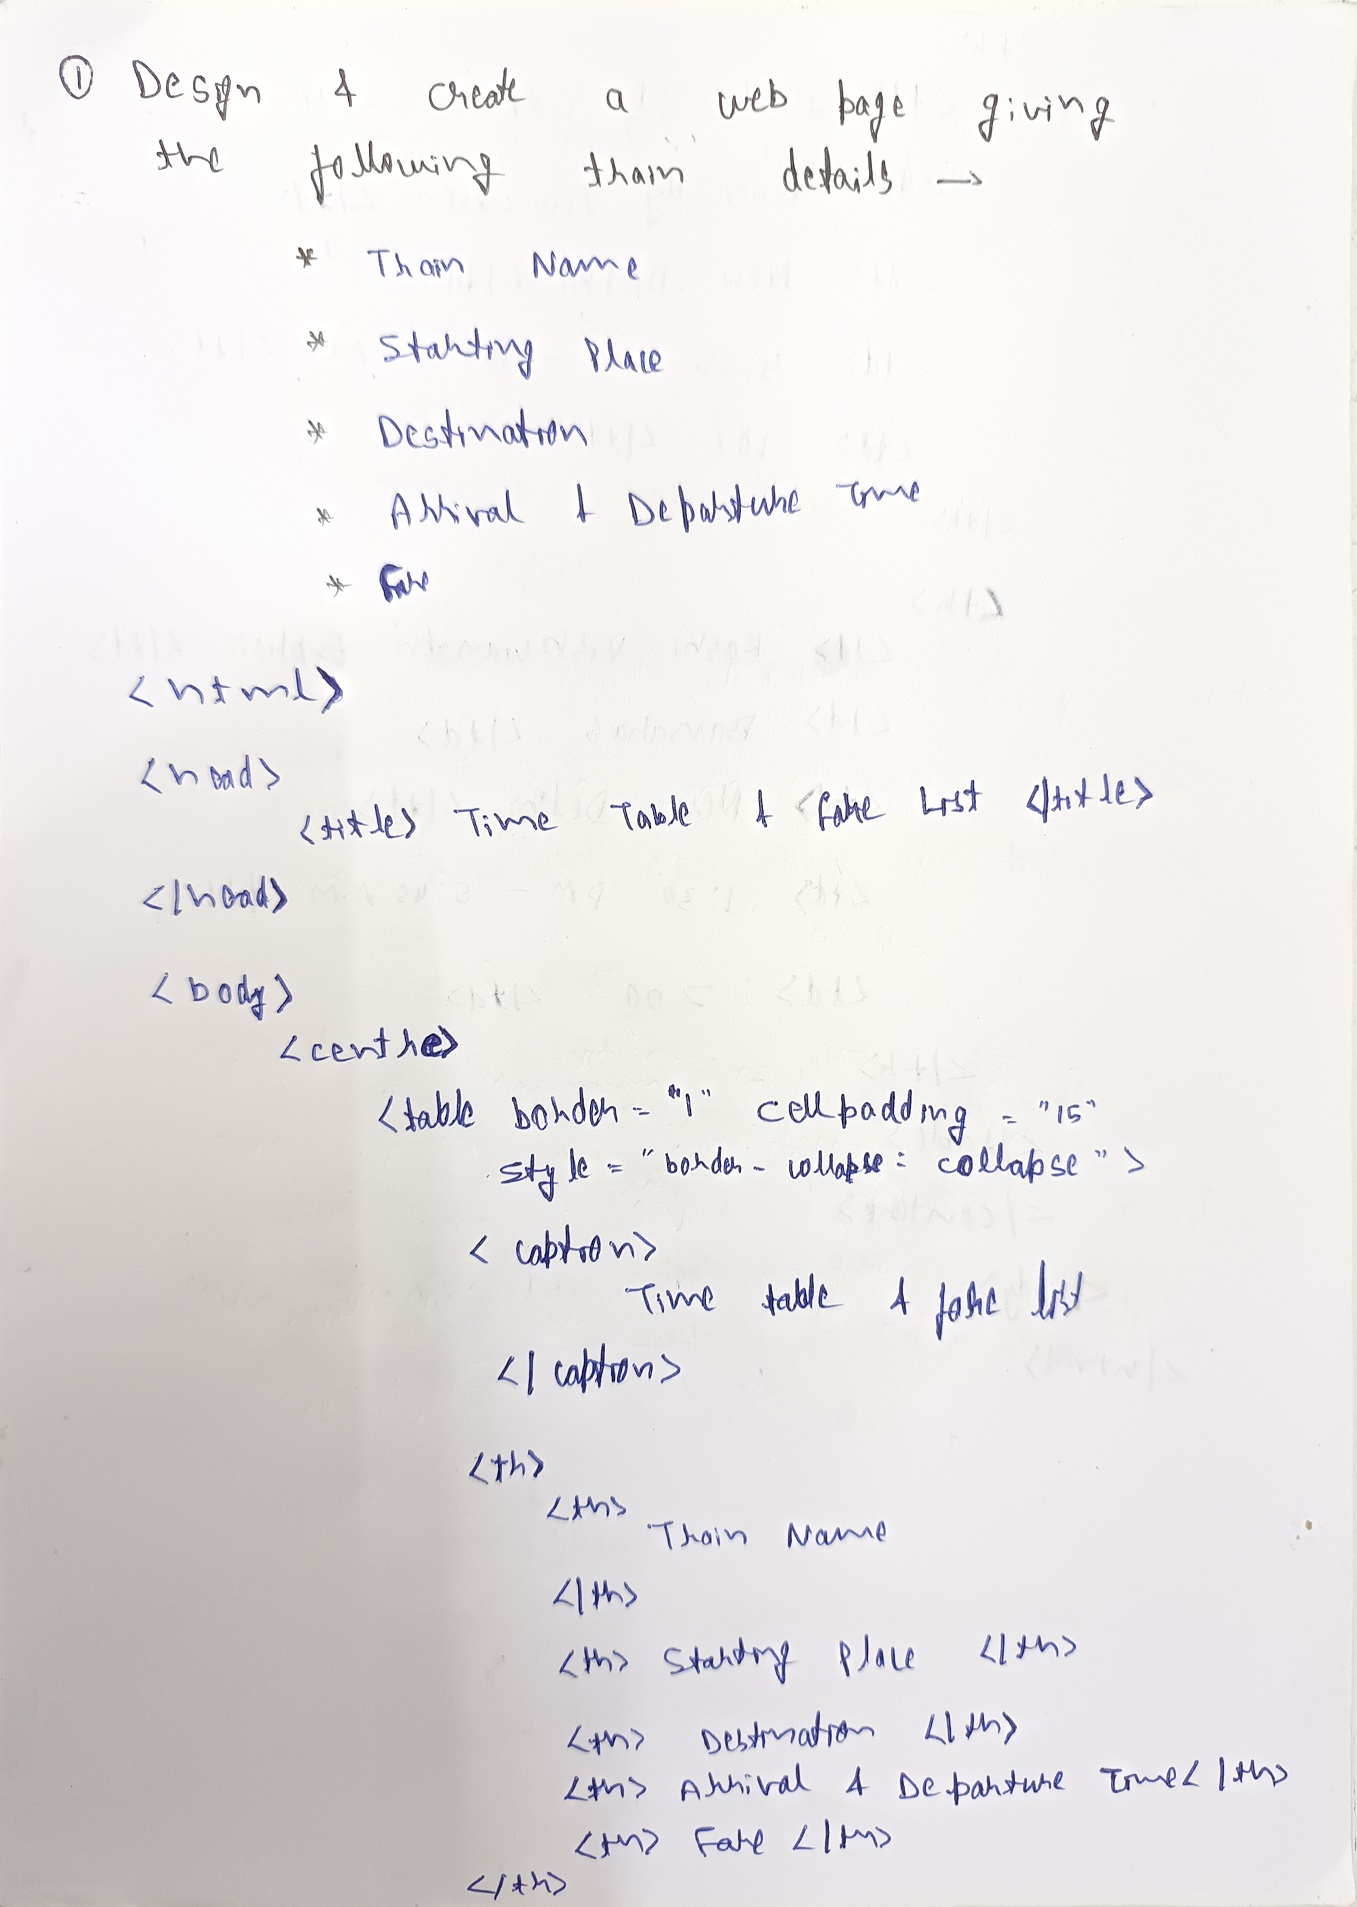 ① Design & create a web page giving
the following train details →
* Train Name
* Starting Place
* Destination
* Arrival & Departure Time
* Fare
<html>
<head>
<title> Time Table & Fare List </title>
</head>
<body>
<centre>
<table border = "1" cellpadding = "15"
style = "border - collapse : collapse" >
< caption>
Time table & fare list
</ caption>
<tr>
<th>
Train Name
</th>
<th> Starting Place </th>
<th> Destination </th>
<th> Arrival & Departure Time< /th>
<th> Fare </th>
</tr>